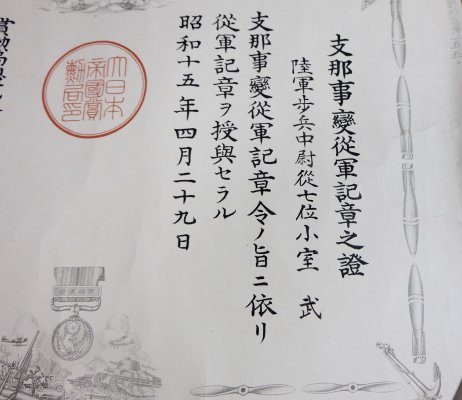 支那事變從軍記章之證
陸軍步兵中尉從七位小室 武
支那事變從軍記章令ノ旨ニ依リ
從軍記章ヲ授與セラル
昭和十五年四月二十九日
大日本
帝國賞
勳局印
賞勳局總裁